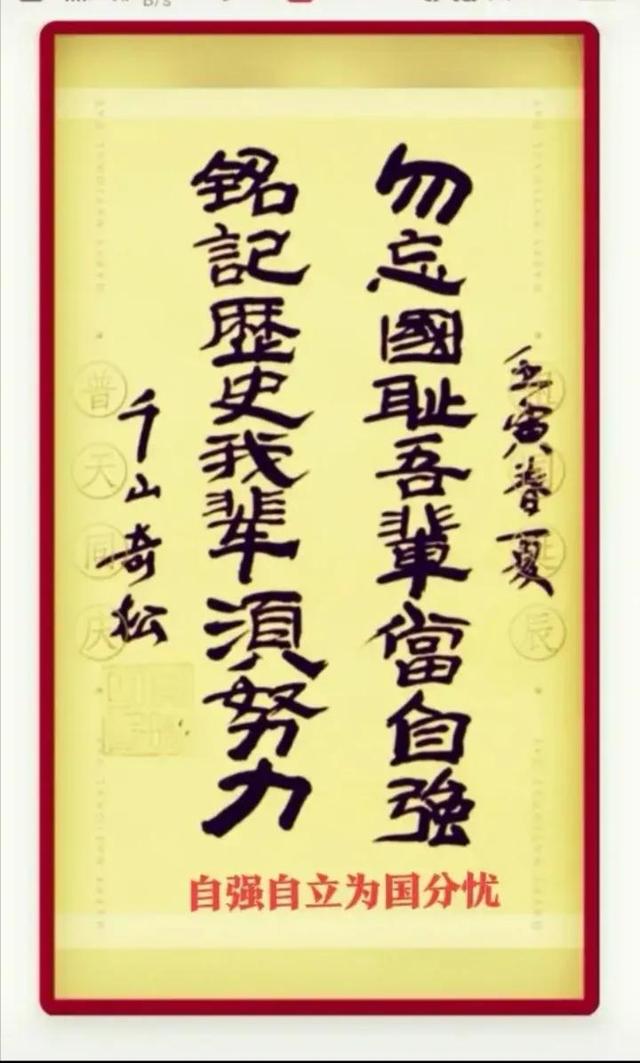 壬寅春夏
勿忘國耻吾輩當自強
銘記歷史我辈須努力
千山奇松
普天同庆
自强自立为国分忧